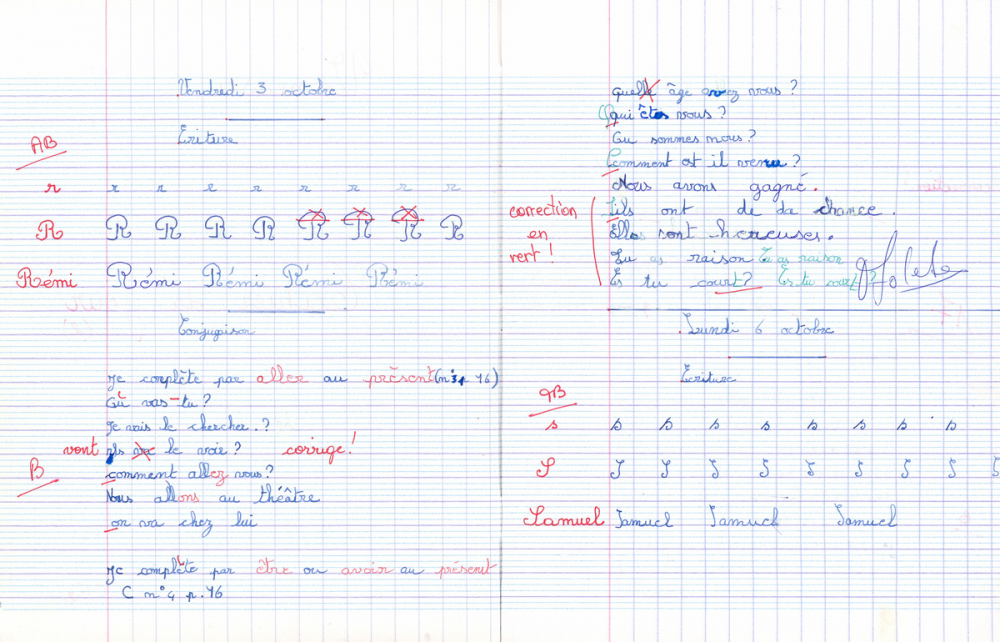 Vendredi 3 octobre
AB
Ecriture
r r r r r r r r r
R R R R R R R R R
Rémi Rémi Rémi Rémi Rémi
Conjugaison
Je complète par aller au présent (n°3, 46)
Où vas-tu ?
Je vais le chercher. ?
vont ils le voir ? corrige !
B comment allez vous ?
Nous allons au théâtre
on va chez lui
Je complète par être ou avoir au présent
C n°4 p. 46
Quelle âge avez vous ?
Qui êtes vous ?
Où sommes nous ?
Comment est il venu ?
Nous avons gagné.
correction en vert !
Ils ont de la chance.
Elles sont heureuses.
Tu as raison Tu as raison
Es tu court ? Es tu court ?
Lundi 6 octobre
Ecriture
s s s s s s s s s
S S S S S S S S S S
Samuel Samuel Samuel Samuel